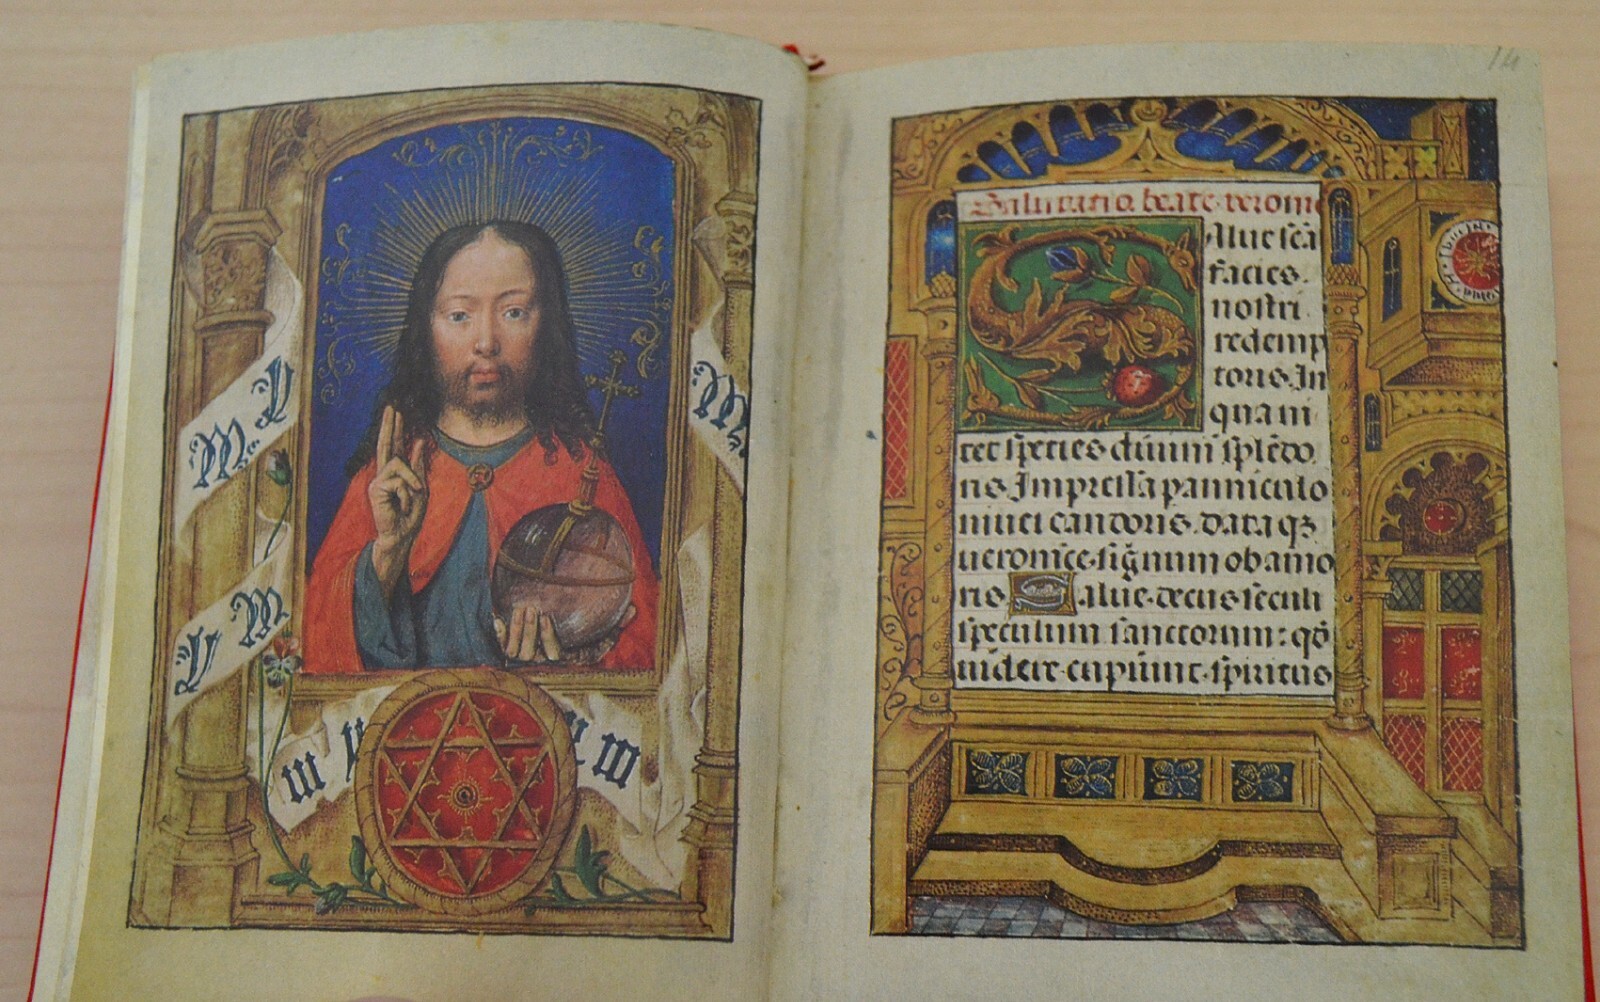 14
Salutatio beate veronic
Salue scā
facies
nostri
redemp
toris. In
qua ni
tet species diuini splēdo
ris. Impressa panniculo
niuei candoris. data qz
ueronice. signum ob amo
ris Salue. decus seculi
speculum sanctorum: qđ
uidere. cupiunt. spiritus